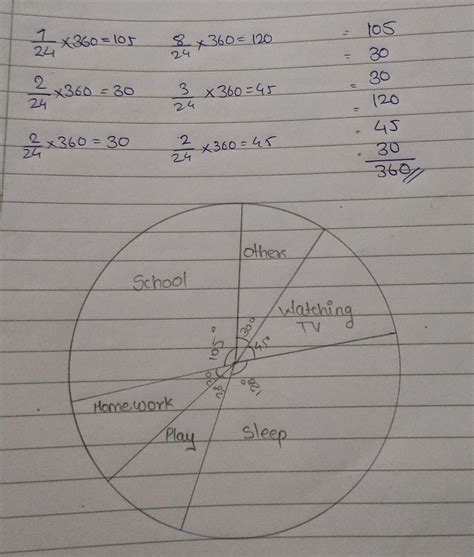 7/24 ×360=105 8/24 ×360=120 = 105
= 30
2/24 ×360=30 3/24 ×360=45 = 30
= 120
2/24 ×360=30 2/24 ×360=45 = 45
= 30
360//
Others
School
Watching
TV
105° 30° 45°
30° 30° 120°
Homework
Play Sleep